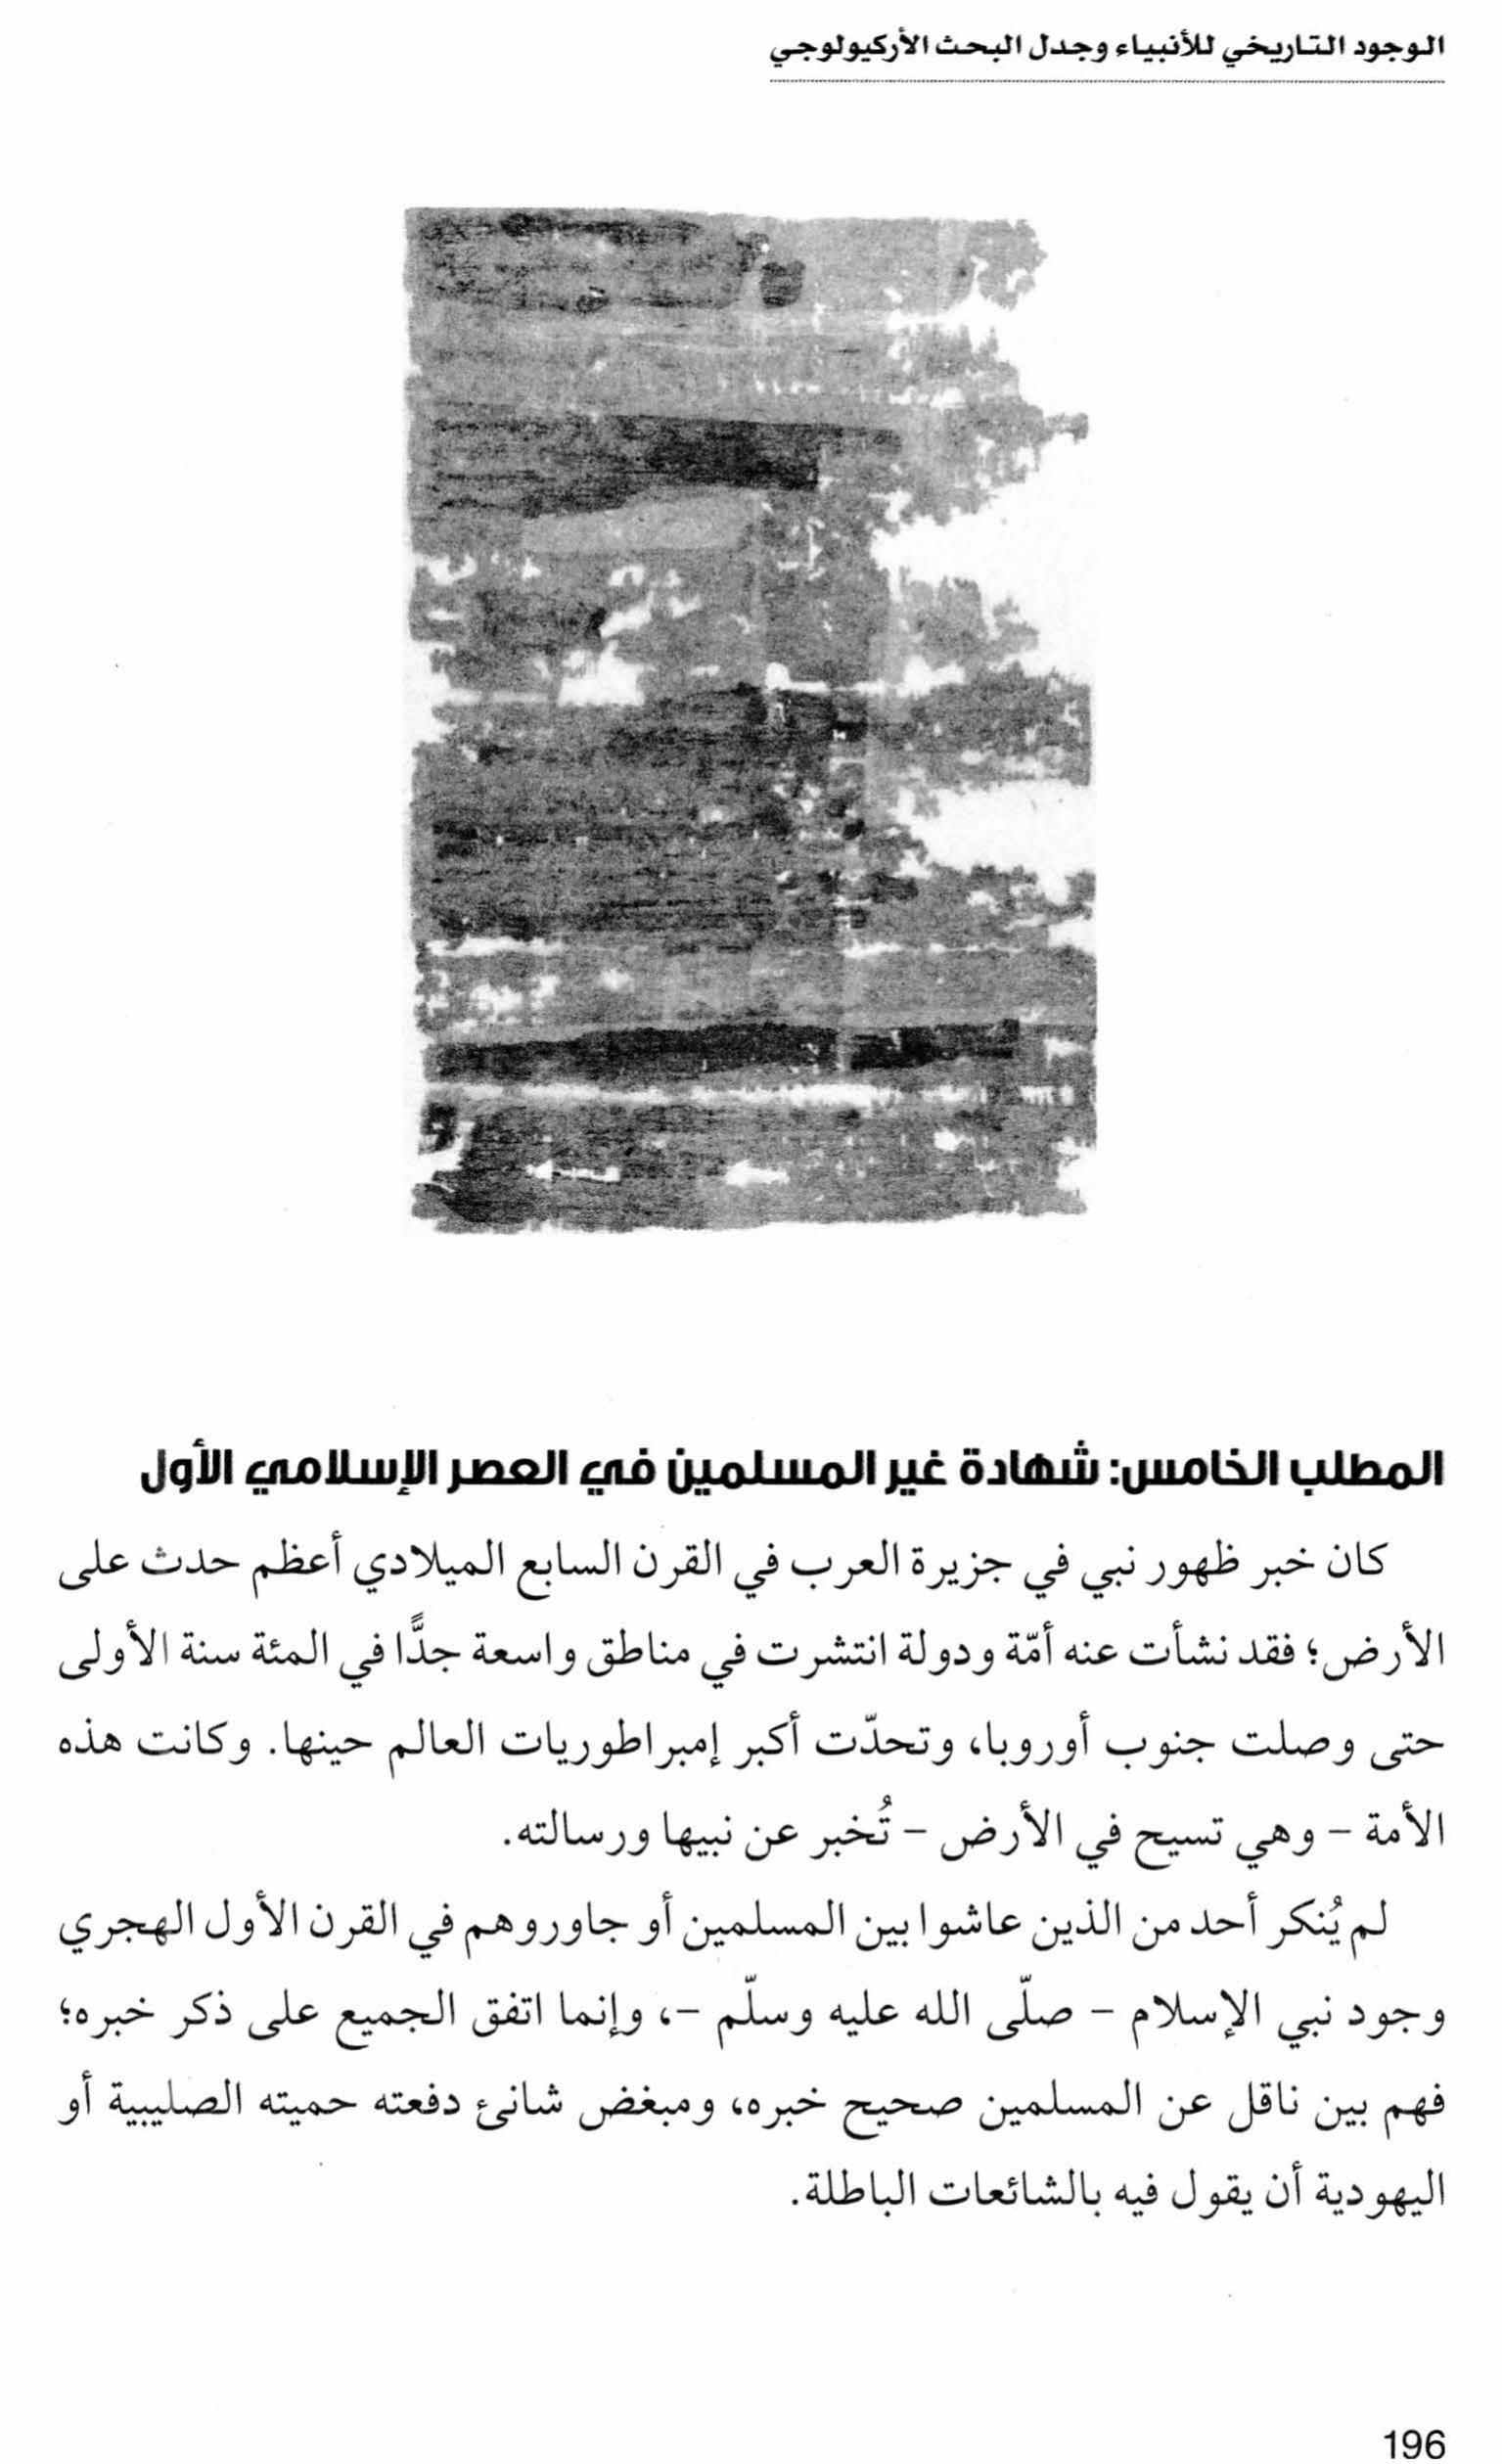 الوجود التاريخي للأنبياء وجدل البحث الأركيولوجي
المطلب الخامس: شهادة غير المسلمين في العصر الإسلامي الأول
كان خبر ظهور نبي في جزيرة العرب في القرن السابع الميلادي أعظم حدث على
الأرض؛ فقد نشأت عنه أمّة ودولة انتشرت في مناطق واسعة جدًّا في المئة سنة الأولى
حتى وصلت جنوب أوروبا، وتحدّت أكبر إمبراطوريات العالم حينها. وكانت هذه
الأمة - وهي تسيح في الأرض - تُخبر عن نبيها ورسالته.
لم يُنكر أحد من الذين عاشوا بين المسلمين أو جاوروهم في القرن الأول الهجري
وجود نبي الإسلام - صلّى الله عليه وسلّم -، وإنما اتفق الجميع على ذكر خبره؛
فهم بين ناقل عن المسلمين صحيح خبره، ومبغض شانئ دفعته حميته الصليبية أو
اليهودية أن يقول فيه بالشائعات الباطلة.
196